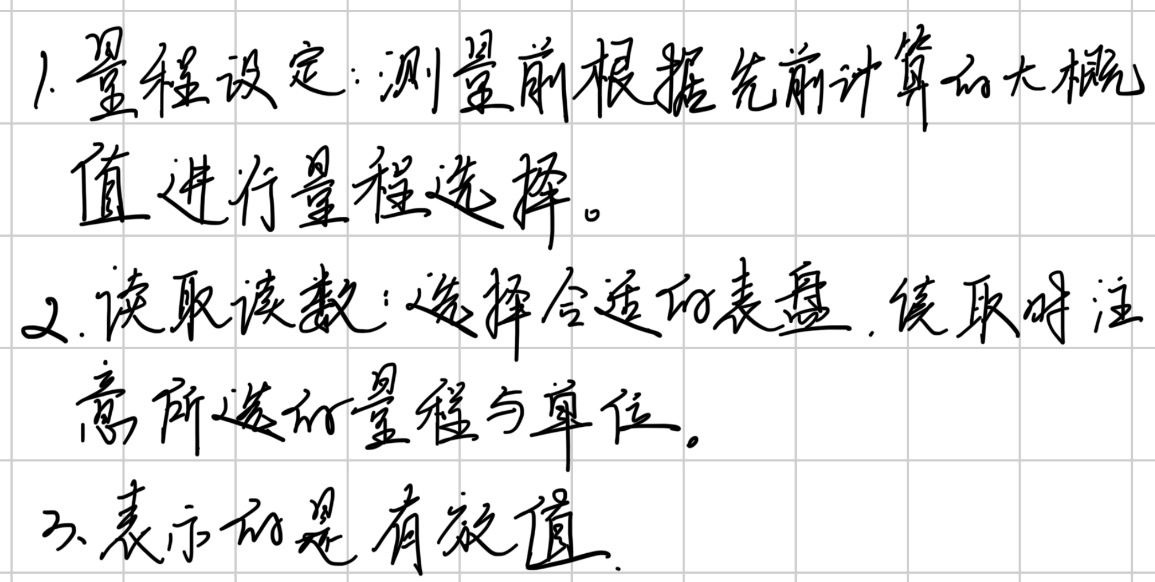 1. 量程设定:测量前根据先前计算的大概
值进行量程选择。
2. 读取读数:选择合适的表盘.读取时注
意所选的量程与单位。
3、表示的是有效值.